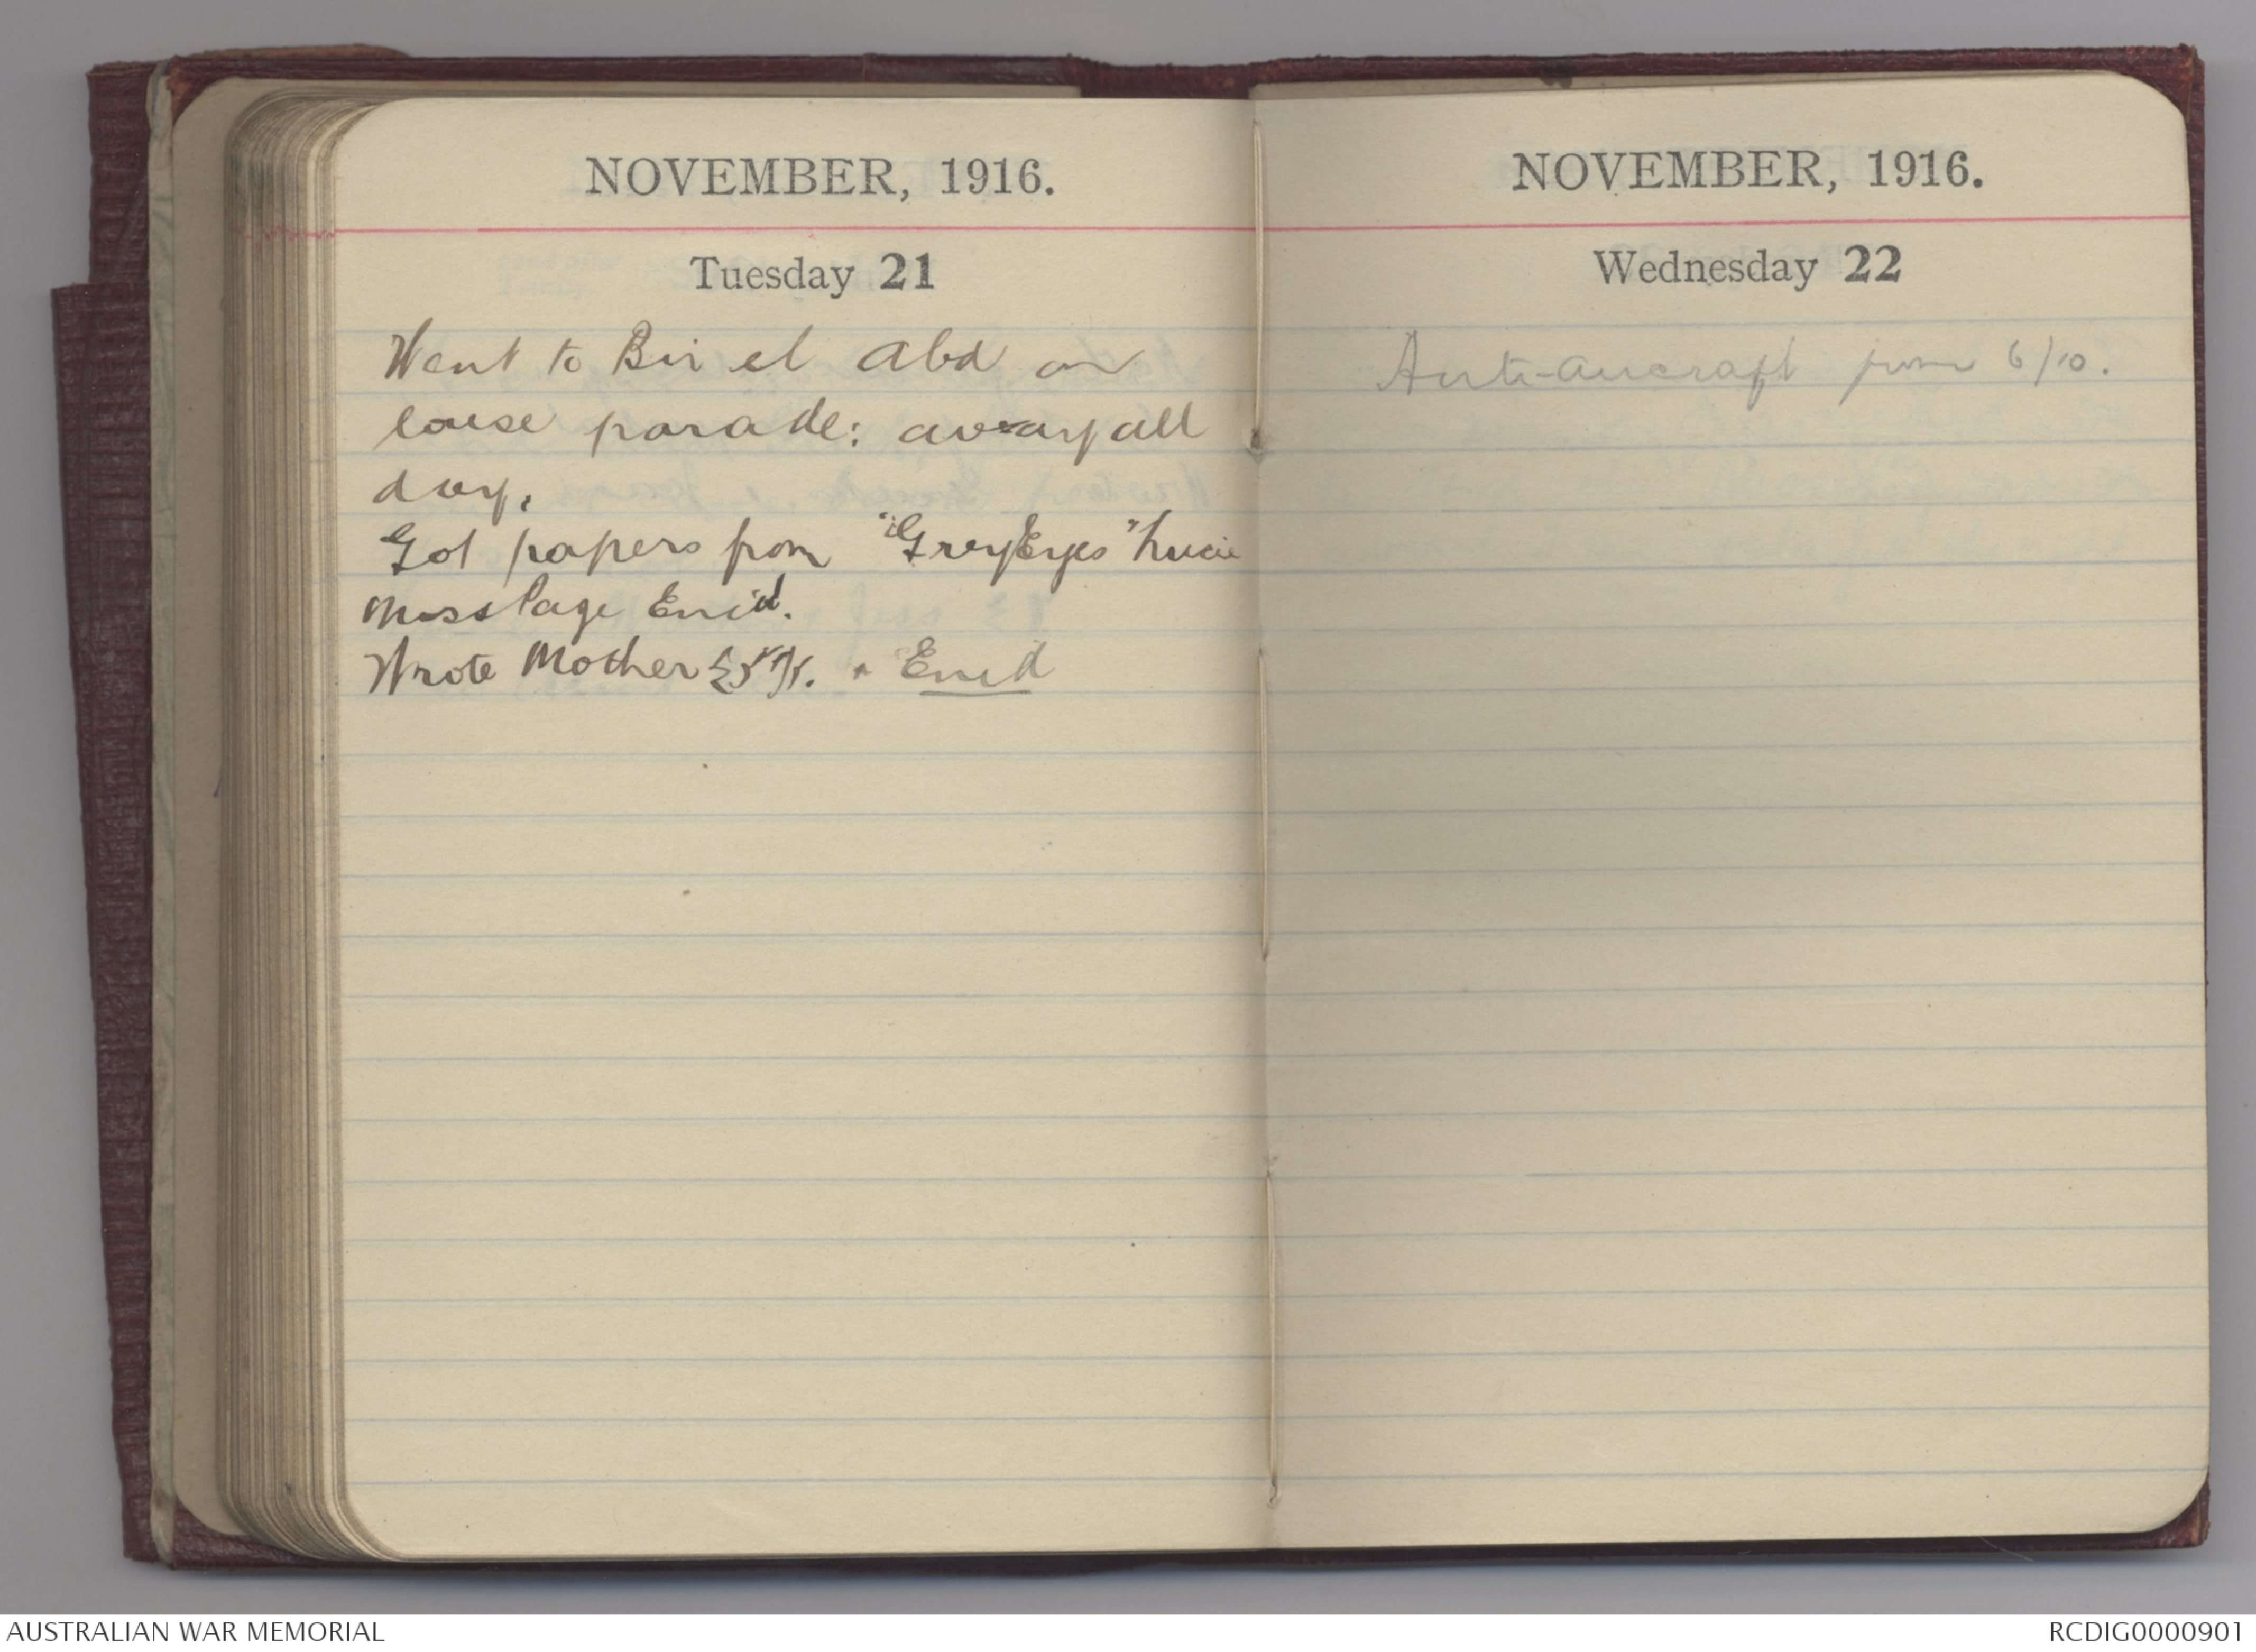 NOVEMBER, 1916.
Tuesday 21
Went to Bir el Abd on
louse parade: away all
day.
Got papers from "Grey Eyes" Lucie
Miss Page Enid.
Wrote Mother + Enid
NOVEMBER, 1916.
Wednesday 22
Anti-aircraft from 6/10.
AUSTRALIAN WAR MEMORIAL
RCDIG0000901